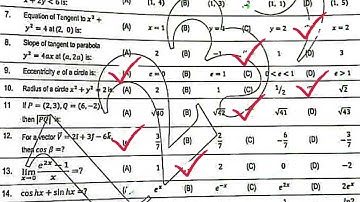 x + 2y < 6 is: (A) (1, 4) (B) (1, 3) (1, 1) (D) (1, 5)
7. Equation of Tangent to x² + y² = 4 at (2, 0) is: (A) x = 1 (B) y = 4 (C) y = 2 x = 2
8. Slope of tangent to parabola y² = 4ax at (a, 2a) is: (A) 2 (B) (C) 1 (D) 3
9. Eccentricity e of a circle is: (A) e = 0 (B) e = 1 (C) 0 < e < 1 (D) e > 1
10. Radius of circle x² + y² = 2 is: (A) 2 (B) (C) 1/2 (D) √2
11 If P = (2,3), Q = (6,-2), then |PQ| is: (A) √40 (B) √42 (C) √41 (D) √43
12. For a vector V = 2i + 3j − 6k, then cos β = ? (A) 3/7 (B) 2/7 (C) −6/7 (D) 3/7
13. lim x→0 e²ˣ − 1 / x = ? (A) (B) 2 (C) 0 (D) −2
14. cos hx + sin hx = ? eˣ (B) e⁻ˣ (C) e²ˣ (D) 2eˣ